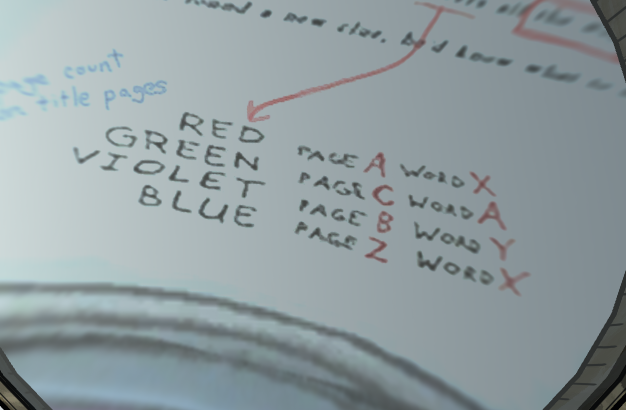 need a new clue. He'd know what to
page count
on title pages
RED PAGE A WORD X
GREEN PAGE C WORD A
VIOLET PAGE B WORD Y
BLUE PAGE Z WORD X